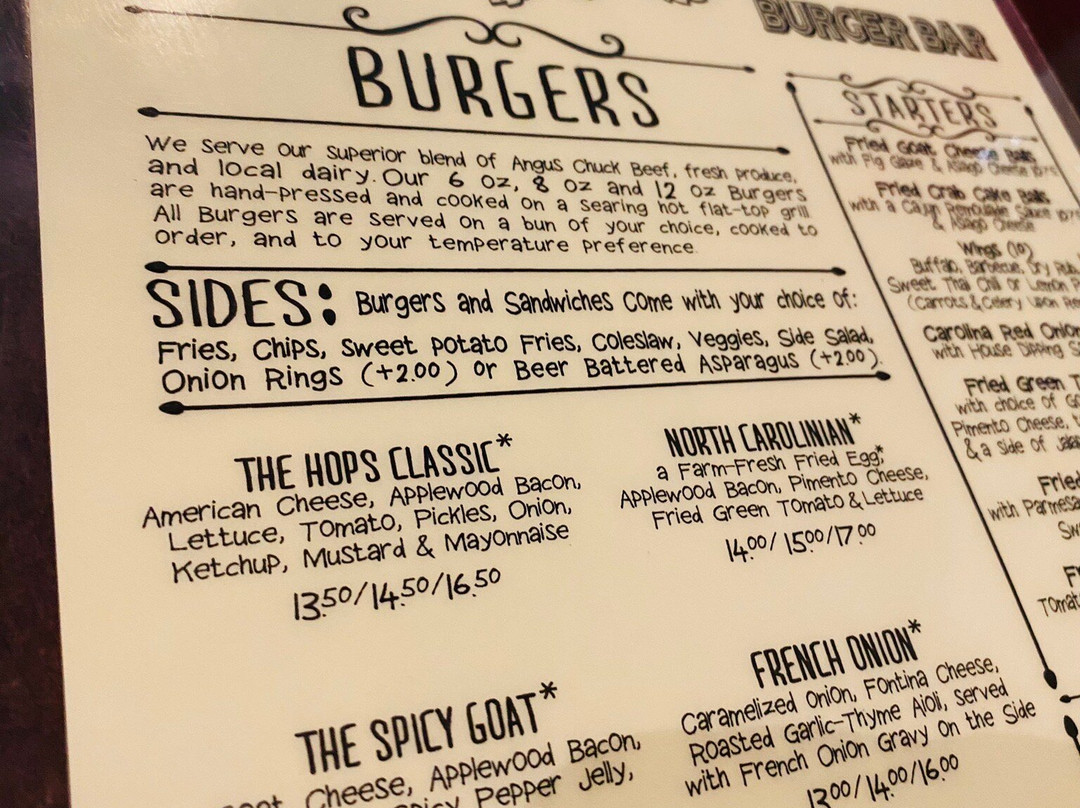 BURGER BAR
BURGERS
We serve our superior blend of Angus Chuck Beef, fresh produce,
and local dairy. Our 6 oz, 8 oz and 12 oz Burgers
are hand-pressed and cooked on a searing hot flat-top grill.
All Burgers are served on a bun of your choice, cooked to
order, and to your temperature preference.
SIDES: Burgers and Sandwiches come with your choice of:
Fries, Chips, Sweet Potato Fries, Coleslaw, Veggies, Side Salad,
Onion Rings (+2.00) or Beer Battered Asparagus (+2.00).
THE HOPS CLASSIC*
American Cheese, Applewood Bacon,
Lettuce, Tomato, Pickles, Onion,
Ketchup, Mustard & Mayonnaise
13.50/14.50/16.50
NORTH CAROLINIAN*
a Farm-Fresh Fried Egg*,
Applewood Bacon, Pimento Cheese,
Fried Green Tomato & Lettuce
14.00/15.00/17.00
THE SPICY GOAT*
Cheese, Applewood Bacon,
Pepper Jelly,
FRENCH ONION*
Caramelized Onion, Fontina Cheese,
Roasted Garlic-Thyme Aioli, served
with French Onion Gravy on the Side
13.00/14.00/16.00
STARTERS
Fried Goat Cheese Balls
with Fig Glaze & Asiago Cheese
Fried Crab Cake Balls
with a Cajun Remoulade Sauce
& Asiago Cheese
Wings (10)
Buffalo, Barbecue, Dry Rub,
Sweet Thai Chili or Lemon
(Carrots & Celery Upon
Carolina Red Onion
with House Dipping
Fried Green
with choice of
Pimento Cheese,
& a side of
Fried
with